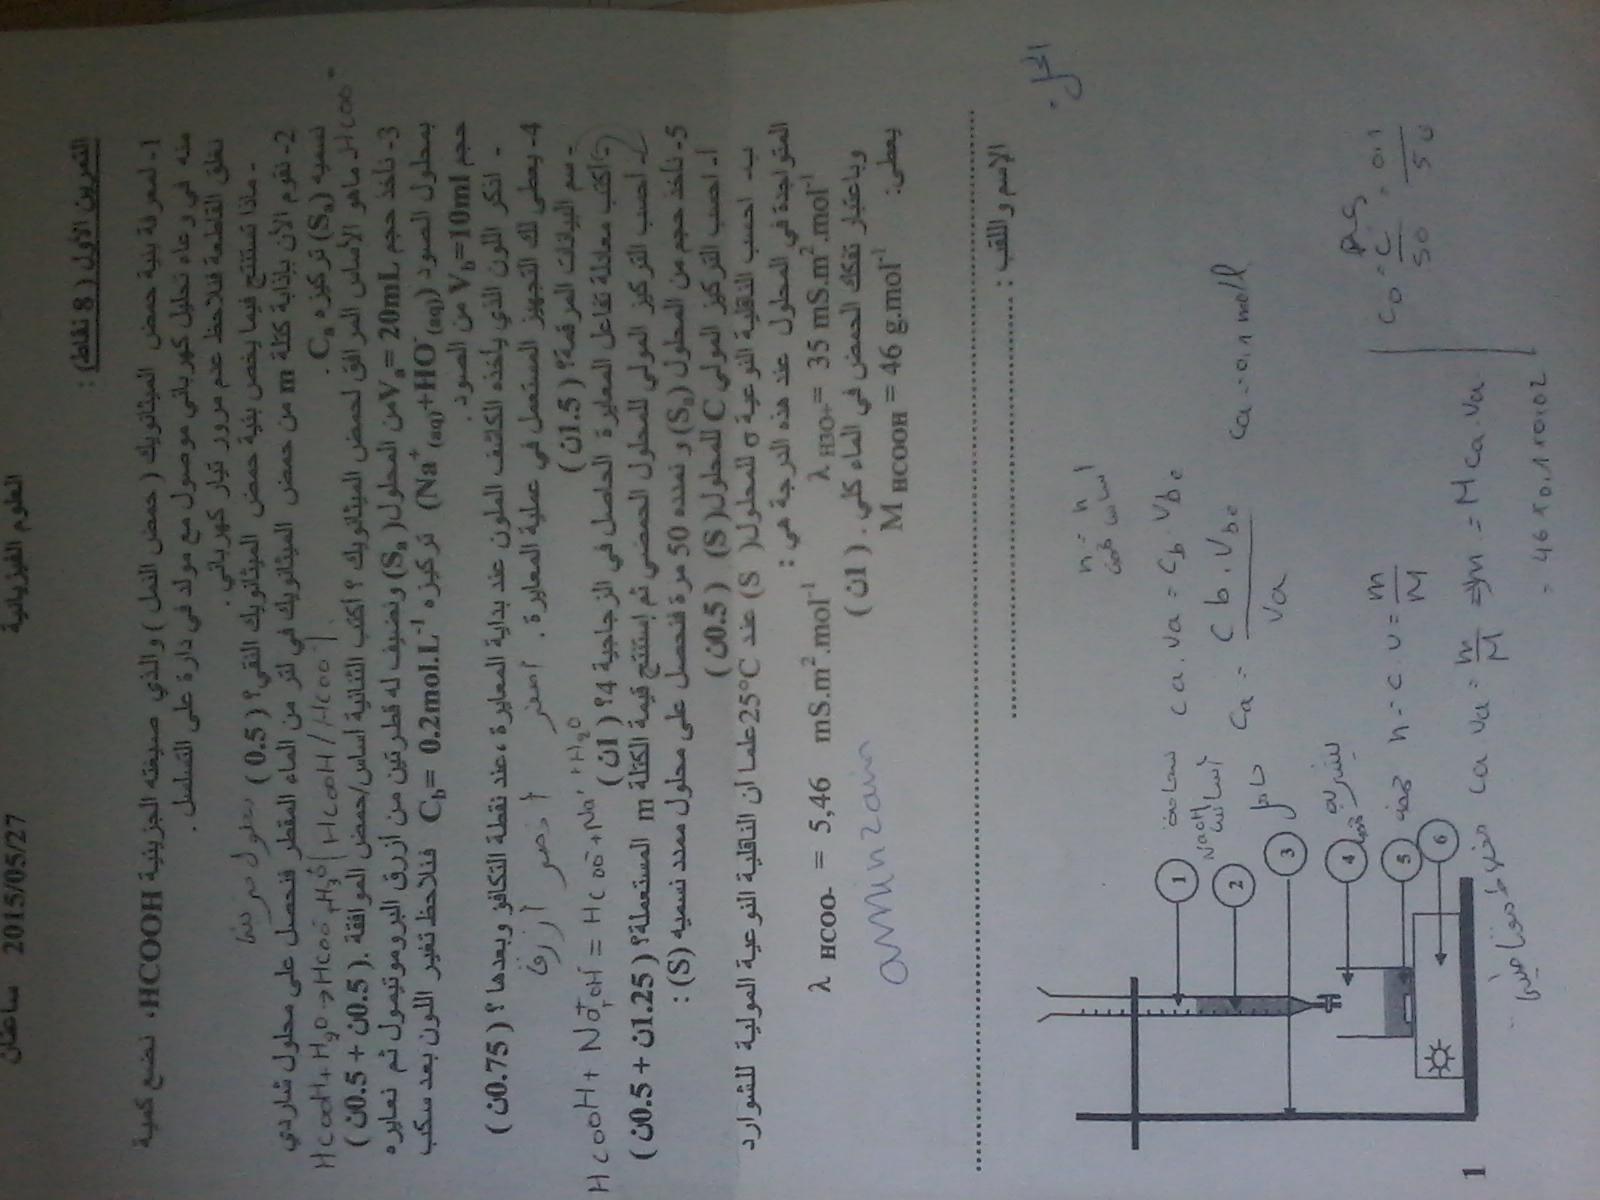 العلوم الفيزيائية 2015/05/27 ساعتان
التمرين الأول ( 8 نقاط) :
1- لمعرفة بنية حمض الميثانويك ( حمض النمل ) والذي صيغته الجزيئية HCOOH، نضع كمية
منه في وعاء تحليل كهربائي موصول مع مولد في دارة على التسلسل .
نغلق القاطعة فنلاحظ عدم مرور تيار كهربائي .
- ماذا تستنتج فيما يخص بنية حمض الميثانويك النقي؟ ( 0.5 )
2- نقوم الآن بإذابة كتلة m من حمض الميثانويك في لتر من الماء المقطر فنحصل على محلول شاردي
HCOOH + H₂O → HCOO⁻ + H₃O⁺ HCOOH / HCOO⁻
نسميه (Sa) تركيزه Ca .
HCOO⁻ ماهو الأساس المرافق لحمض الميثانويك ؟ اكتب الثنائية أساس/حمض الموافقة. ( 0.5ن + 0.5ن )
3- نأخذ حجم Va = 20mL من المحلول (Sa) ونضيف له قطرتين من أزرق البروموتيمول ثم نعايره
بمحلول الصود (Na⁺(aq)+HO⁻(aq)) تركيزه Cb= 0.2mol.L⁻¹ فنلاحظ تغير اللون بعد سكب
حجم Vb=10ml من الصود.
- اذكر اللون الذي يأخذه الكاشف الملون عند بداية المعايرة ،عند نقطة التكافؤ وبعدها ؟ ( 0.75ن )
4- يعطى لك التجهيز المستعمل في عملية المعايرة . أصفر أخضر أزرق
- سم البيانات المرقمة؟ ( 1.5ن )
HCOOH + Na⁺ + OH⁻ = HCOO⁻ + Na⁺ + H₂O
- اكتب معادلة تفاعل المعايرة الحاصل في الزجاجية 4؟ ( 1ن )
- احسب التركيز المولي للمحلول الحمضي ثم إستنتج قيمة الكتلة m المستعملة؟ ( 1.25ن + 0.5ن )
5- نأخذ حجم من المحلول (Sa) و نمدده 50 مرة فنحصل على محلول ممدد نسميه (S) :
أ- احسب التركيز المولي C للمحلول (S) ( 0.5ن )
ب- احسب الناقلية النوعية σ للمحلول( S ) عند 25°C علما أن الناقلية النوعية المولية للشوارد
المتواجدة في المحلول عند هذه الدرجة هي :
λ H3O+ = 35 mS.m².mol⁻¹ λ HCOO- = 5,46 mS.m².mol⁻¹
وباعتبار تفكك الحمض في الماء كلي . ( 1ن )
يعطى: M HCOOH = 46 g.mol⁻¹
aminzain
الإسم و اللقب :
الحل
n = n
أساس حمض
1 سحاحة
2 NaOH
3 حامل
4
5 حمض
6 مخلاط مغناطيسي
Ca . Va = Cb . Vbe
Ca = Cb . Vbe / Va
Ca = 0,1 mol/l
n = C . V = m/M
Ca Va = m/M ⇒ m = M Ca . Va
= 46 x 0,1
C0 = C/50 = 0.1/50
1